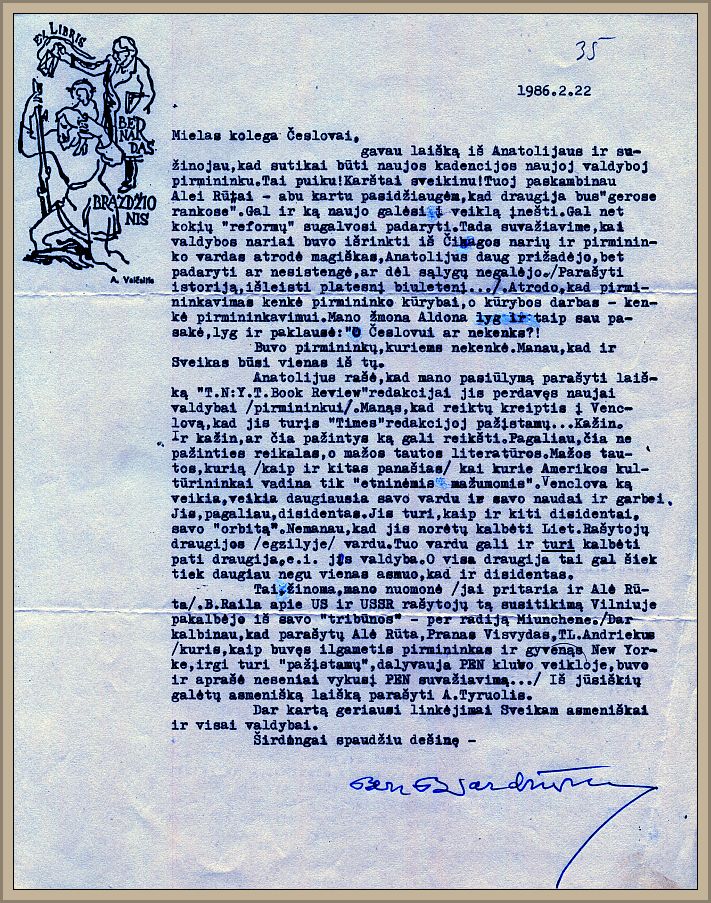 35
EX LIBRIS
BER
NAR
DAS
BRAZDŽIO
NIS
A. Vaičaitis
1986.2.22
Mielas kolega Česlovai,
gavau laišką iš Anatolijaus ir su-
žinojau,kad sutikai būti naujos kadencijos naujoj valdyboj
pirmininku.Tai puiku!Karštai sveikinu!Tuoj paskambinau
Alei Rūtai - abu kartu pasidžiaugėm,kad draugija bus"gerose
rankose".Gal ir ką naujo galėsi į veiklą įnešti.Gal net
kokių "reformų" sugalvosi padaryti.Tada suvažiavime,kai
valdybos nariai buvo išrinkti iš Čikagos narių ir pirminin-
ko vardas atrodė magiškas,Anatolijus daug prižadėjo,bet
padaryti ar nesistengė,ar dėl sąlygų negalėjo./Parašyti
istoriją,išleisti platesnį biuletenį.../.Atrodo,kad pirmi-
ninkavimas kenkė pirmininko kūrybai,o kūrybos darbas - ken-
kė pirmininkavimui.Mano žmona Aldona lyg ir taip sau pa-
sakė,lyg ir paklausė:"O Česlovui ar nekenks?!
Buvo pirmininkų,kuriems nekenkė.Manau,kad ir
Sveikas būsi vienas iš tų.
Anatolijus rašė,kad mano pasiūlymą parašyti laiš-
ką "T.N:Y.T.Book Review"redakcijai jis perdavęs naujai
valdybai /pirmininkui/.Manąs,kad reiktų kreiptis į Venc-
lovą,kad jis turįs "Times"redakcijoj pažįstamų...Kažin.
Ir kažin,ar čia pažintys ką gali reikšti.Pagaliau,čia ne
pažinties reikalas,o mažos tautos literatūros.Mažos tau-
tos,kurią /kaip ir kitas panašias/ kai kurie Amerikos kul-
tūrininkai vadina tik "etninėmis mažumomis".Venclova ką
veikia,veikia daugiausia savo vardu ir savo naudai ir garbei.
Jis,pagaliau,disidentas.Jis turi,kaip ir kiti disidentai,
savo "orbitą".Nemanau,kad jis norėtų kalbėti Liet.Rašytojų
draugijos /egzilyje/ vardu.Tuo vardu gali ir turi kalbėti
pati draugija,e.i. jos valdyba.O visa draugija tai gal šiek
tiek daugiau negu vienas asmuo,kad ir disidentas.
Tai,žinoma,mano nuomonė /jai pritaria ir Alė Rū-
ta/.B.Raila apie US ir USSR rašytojų tą susitikimą Vilniuje
pakalbėjo iš savo "tribūnos" - per radiją Miunchene./Dar
kalbinau,kad parašytų Alė Rūta,Pranas Visvydas,TL.Andriekus
/kuris,kaip buvęs ilgametis pirmininkas ir gyvenąs New Yor-
ke,irgi turi "pažįstamų",dalyvauja PEN klubo veikloje,buvo
ir aprašė neseniai vykusį PEN suvažiavimą.../ Iš jūsiškių
galėtų asmenišką laišką parašyti A.Tyruolis.
Dar kartą geriausi linkėjimai Sveikam asmeniškai
ir visai valdybai.
Širdingai spaudžiu dešinę -